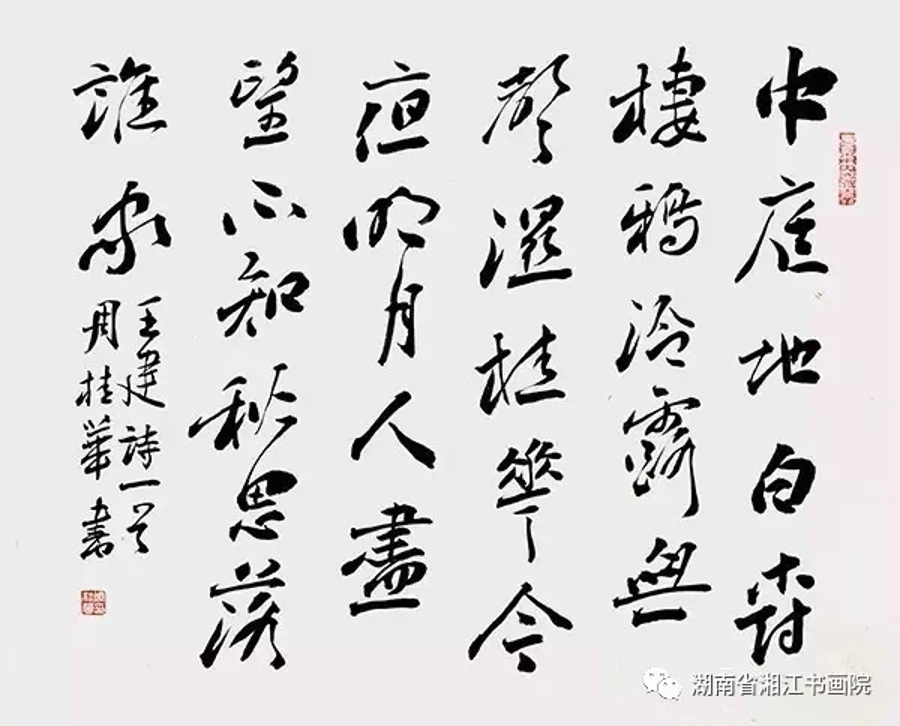 中庭地白树
棲鸦冷露無
聲濕桂華今
夜明月人盡
望不知秋思落
誰家
王建詩一首
周桂華書
湖南省湘江书画院